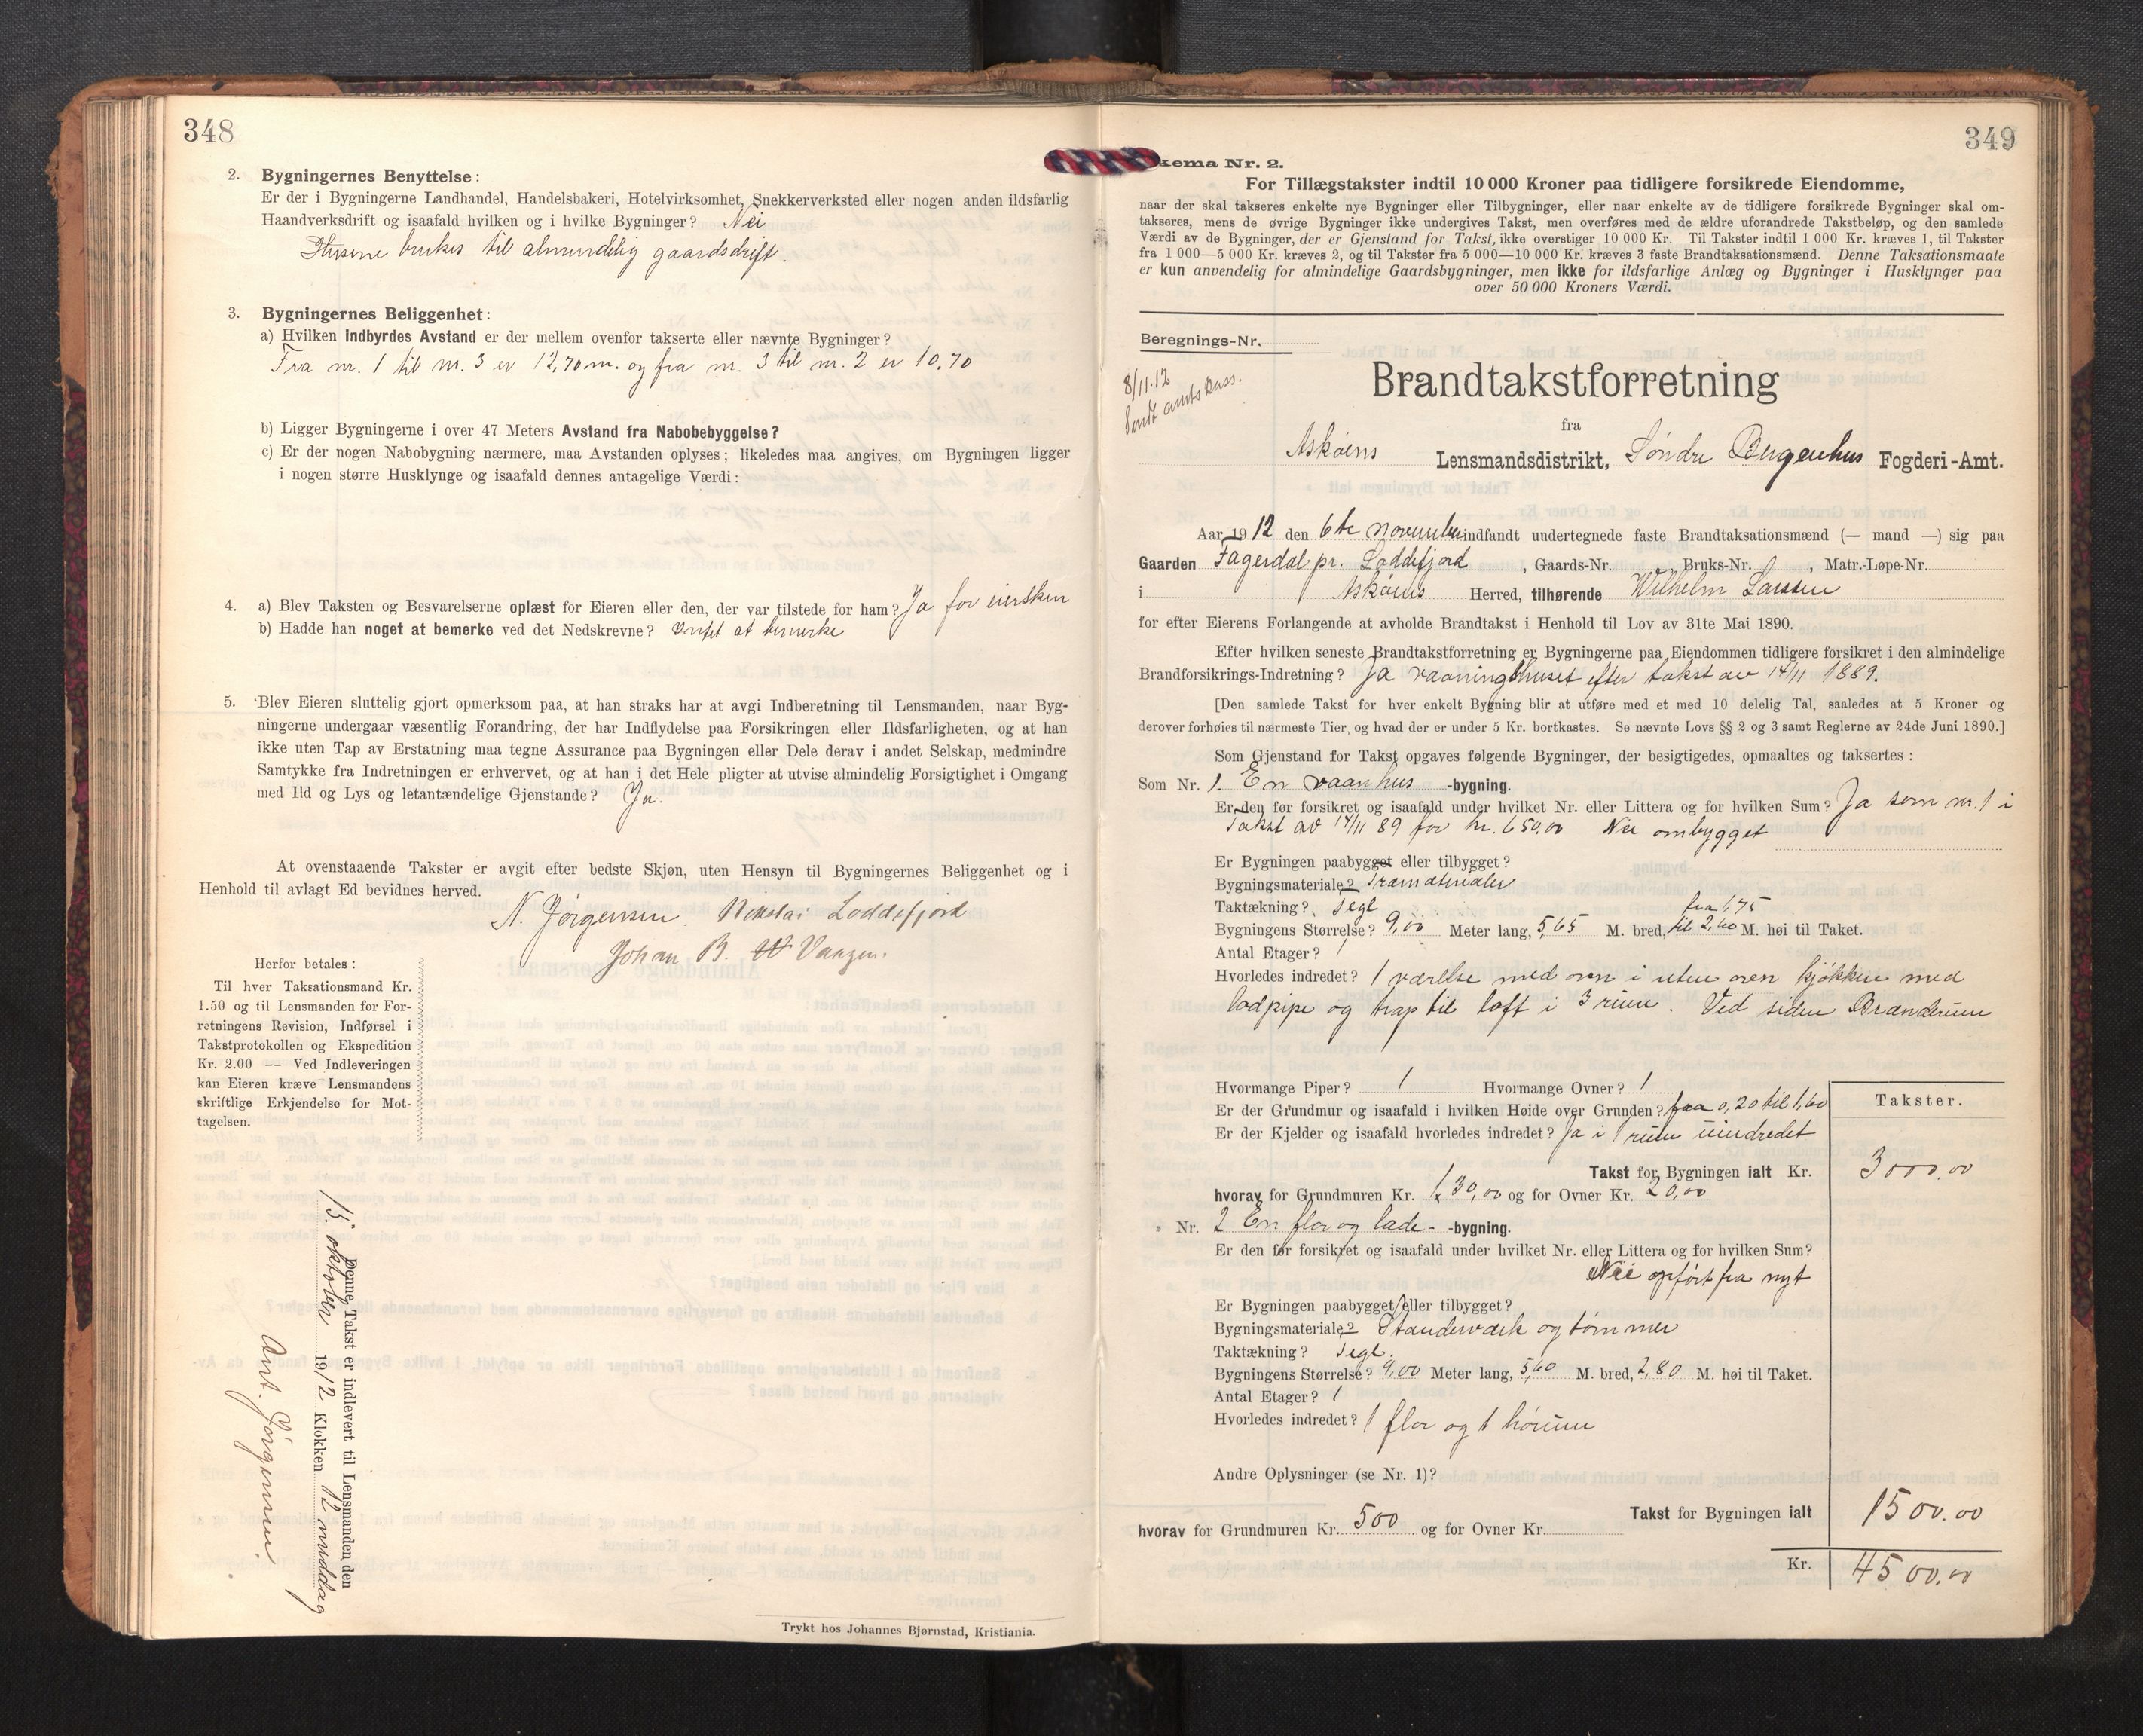 348
2. Bygningernes Benyttelse:
Er der i Bygningerne Landhandel, Handelsbakeri, Hotelvirksomhet, Snekkerverksted eller nogen anden ildsfarlig
Haandverksdrift og isaafald hvilken og i hvilke Bygninger? Nei
Husene brukes til almindelig gaardsdrift.
3. Bygningernes Beliggenhet:
a) Hvilken indbyrdes Avstand er der mellem ovenfor takserte eller nævnte Bygninger?
Fra nr. 1 til nr. 3 er 12,70 m. og fra nr. 3 til nr. 2 er 10,70
b) Ligger Bygningerne i over 47 Meters Avstand fra Nabobebyggelse?
c) Er der nogen Nabobygning nærmere, maa Avstanden oplyses; likeledes maa angives, om Bygningen ligger
i nogen større Husklynge og isaafald dennes antagelige Værdi:
4. a) Blev Taksten og Besvarelserne oplæst for Eieren eller den, der var tilstede for ham? Ja for eiersken
b) Hadde han noget at bemerke ved det Nedskrevne? Intet at bemerke
5. Blev Eieren sluttelig gjort opmerksom paa, at han straks har at avgi Indberetning til Lensmanden, naar Byg-
ningerne undergaar væsentlig Forandring, der har Indflydelse paa Forsikringen eller Ildsfarligheten, og at han
ikke uten Tap av Erstatning maa tegne Assurance paa Bygningen eller Dele derav i andet Selskap, medmindre
Samtykke fra Indretningen er erhvervet, og at han i det Hele pligter at utvise almindelig Forsigtighet i Omgang
med Ild og Lys og letantændelige Gjenstande? Ja.
At ovenstaaende Takster er avgit efter bedste Skjøn, uten Hensyn til Bygningernes Beliggenhet og i
Henhold til avlagt Ed bevidnes herved.
N. Jørgensen. Nikolai Loddefjord
Johan B. Vaagen.
Herfor betales:
Til hver Taksationsmand Kr.
1.50 og til Lensmanden for For-
retningens Revision, Indførsel i
Takstprotokollen og Ekspedition
Kr. 2.00 — Ved Indleveringen
kan Eieren kræve Lensmandens
skriftlige Erkjendelse for Mot-
tagelsen.
Denne Takst er indlevert til Lensmanden den
15. oktober 1912 Klokken 12 middag
Ant. Jørgensen.
Trykt hos Johannes Bjørnstad, Kristiania.
349
kema Nr. 2.
For Tillægstakster indtil 10 000 Kroner paa tidligere forsikrede Eiendomme,
naar der skal takseres enkelte nye Bygninger eller Tilbygninger, eller naar enkelte av de tidligere forsikrede Bygninger skal om-
takseres, mens de øvrige Bygninger ikke undergives Takst, men overføres med de ældre uforandrede Takstbeløp, og den samlede
Værdi av de Bygninger, der er Gjenstand for Takst, ikke overstiger 10 000 Kr. Til Takster indtil 1 000 Kr. kræves 1, til Takster
fra 1 000—5 000 Kr. kræves 2, og til Takster fra 5 000—10 000 Kr. kræves 3 faste Brandtaksationsmænd. Denne Taksationsmaate
er kun anvendelig for almindelige Gaardsbygninger, men ikke for ildsfarlige Anlæg og Bygninger i Husklynger paa
over 50 000 Kroners Værdi.
Beregnings-Nr.
8/11.12
Sendt amtskass.
Brandtakstforretning
fra
Askøens Lensmandsdistrikt, Søndre Bergenhus Fogderi-Amt.
Aar 1912 den 6te november indfandt undertegnede faste Brandtaksationsmænd (— mand —) sig paa
Gaarden Fagerdal pr. Loddefjord, Gaards-Nr. , Bruks-Nr. , Matr.-Løpe-Nr.
i Askøens Herred, tilhørende Wilhelm Larssen
for efter Eierens Forlangende at avholde Brandtakst i Henhold til Lov av 31te Mai 1890.
Efter hvilken seneste Brandtakstforretning er Bygningerne paa Eiendommen tidligere forsikret i den almindelige
Brandforsikrings-Indretning? Ja vaaningshuset efter takst av 14/11 1889.
[Den samlede Takst for hver enkelt Bygning blir at utføre med et med 10 delelig Tal, saaledes at 5 Kroner og
derover forhøies til nærmeste Tier, og hvad der er under 5 Kr. bortkastes. Se nævnte Lovs §§ 2 og 3 samt Reglerne av 24de Juni 1890.]
Som Gjenstand for Takst opgaves følgende Bygninger, der besigtigedes, opmaaltes og taksertes:
Som Nr. 1. En vaanhus -bygning.
Er den før forsikret og isaafald under hvilket Nr. eller Littera og for hvilken Sum? Ja som nr. 1 i
Takst av 14/11 89 for kr. 650,00 Nu ombygget
Er Bygningen paabygget eller tilbygget?
Bygningsmateriale? Træmaterialer
Taktækning? Tegl fra 1,75
Bygningens Størrelse? 9,00 Meter lang, 5,65 M. bred, til 2,40 M. høi til Taket.
Antal Etager? 1
Hvorledes indredet? 1 værelse med ovn i uten oven kjøkken med
lodpipe og trap til loft i 3 rum. Ved siden Brænderum
Hvormange Piper? 1 Hvormange Ovner? 1
Er der Grundmur og isaafald i hvilken Høide over Grunden? fra 0,20 til 1,60
Er der Kjelder og isaafald hvorledes indredet? Ja i 1 rum uindredet
Takster.
Takst for Bygningen ialt Kr. 3000.00
hvorav for Grundmuren Kr. 130,00 og for Ovner Kr. 20,00
" Nr. 2 En flor og lade- -bygning.
Er den før forsikret og isaafald under hvilket Nr. eller Littera og for hvilken Sum?
Nei opført fra nyt
Er Bygningen paabygget eller tilbygget?
Bygningsmateriale? Standerværk og tømmer
Taktækning? Tegl.
Bygningens Størrelse? 9,00 Meter lang, 5,60 M. bred, 2,80 M. høi til Taket.
Antal Etager? 1
Hvorledes indredet? 1 flor og 1 hørum
Andre Oplysninger (se Nr. 1)?
Takst for Bygningen ialt 1500.00
hvorav for Grundmuren Kr. 500 og for Ovner Kr.
Kr. 4500.00